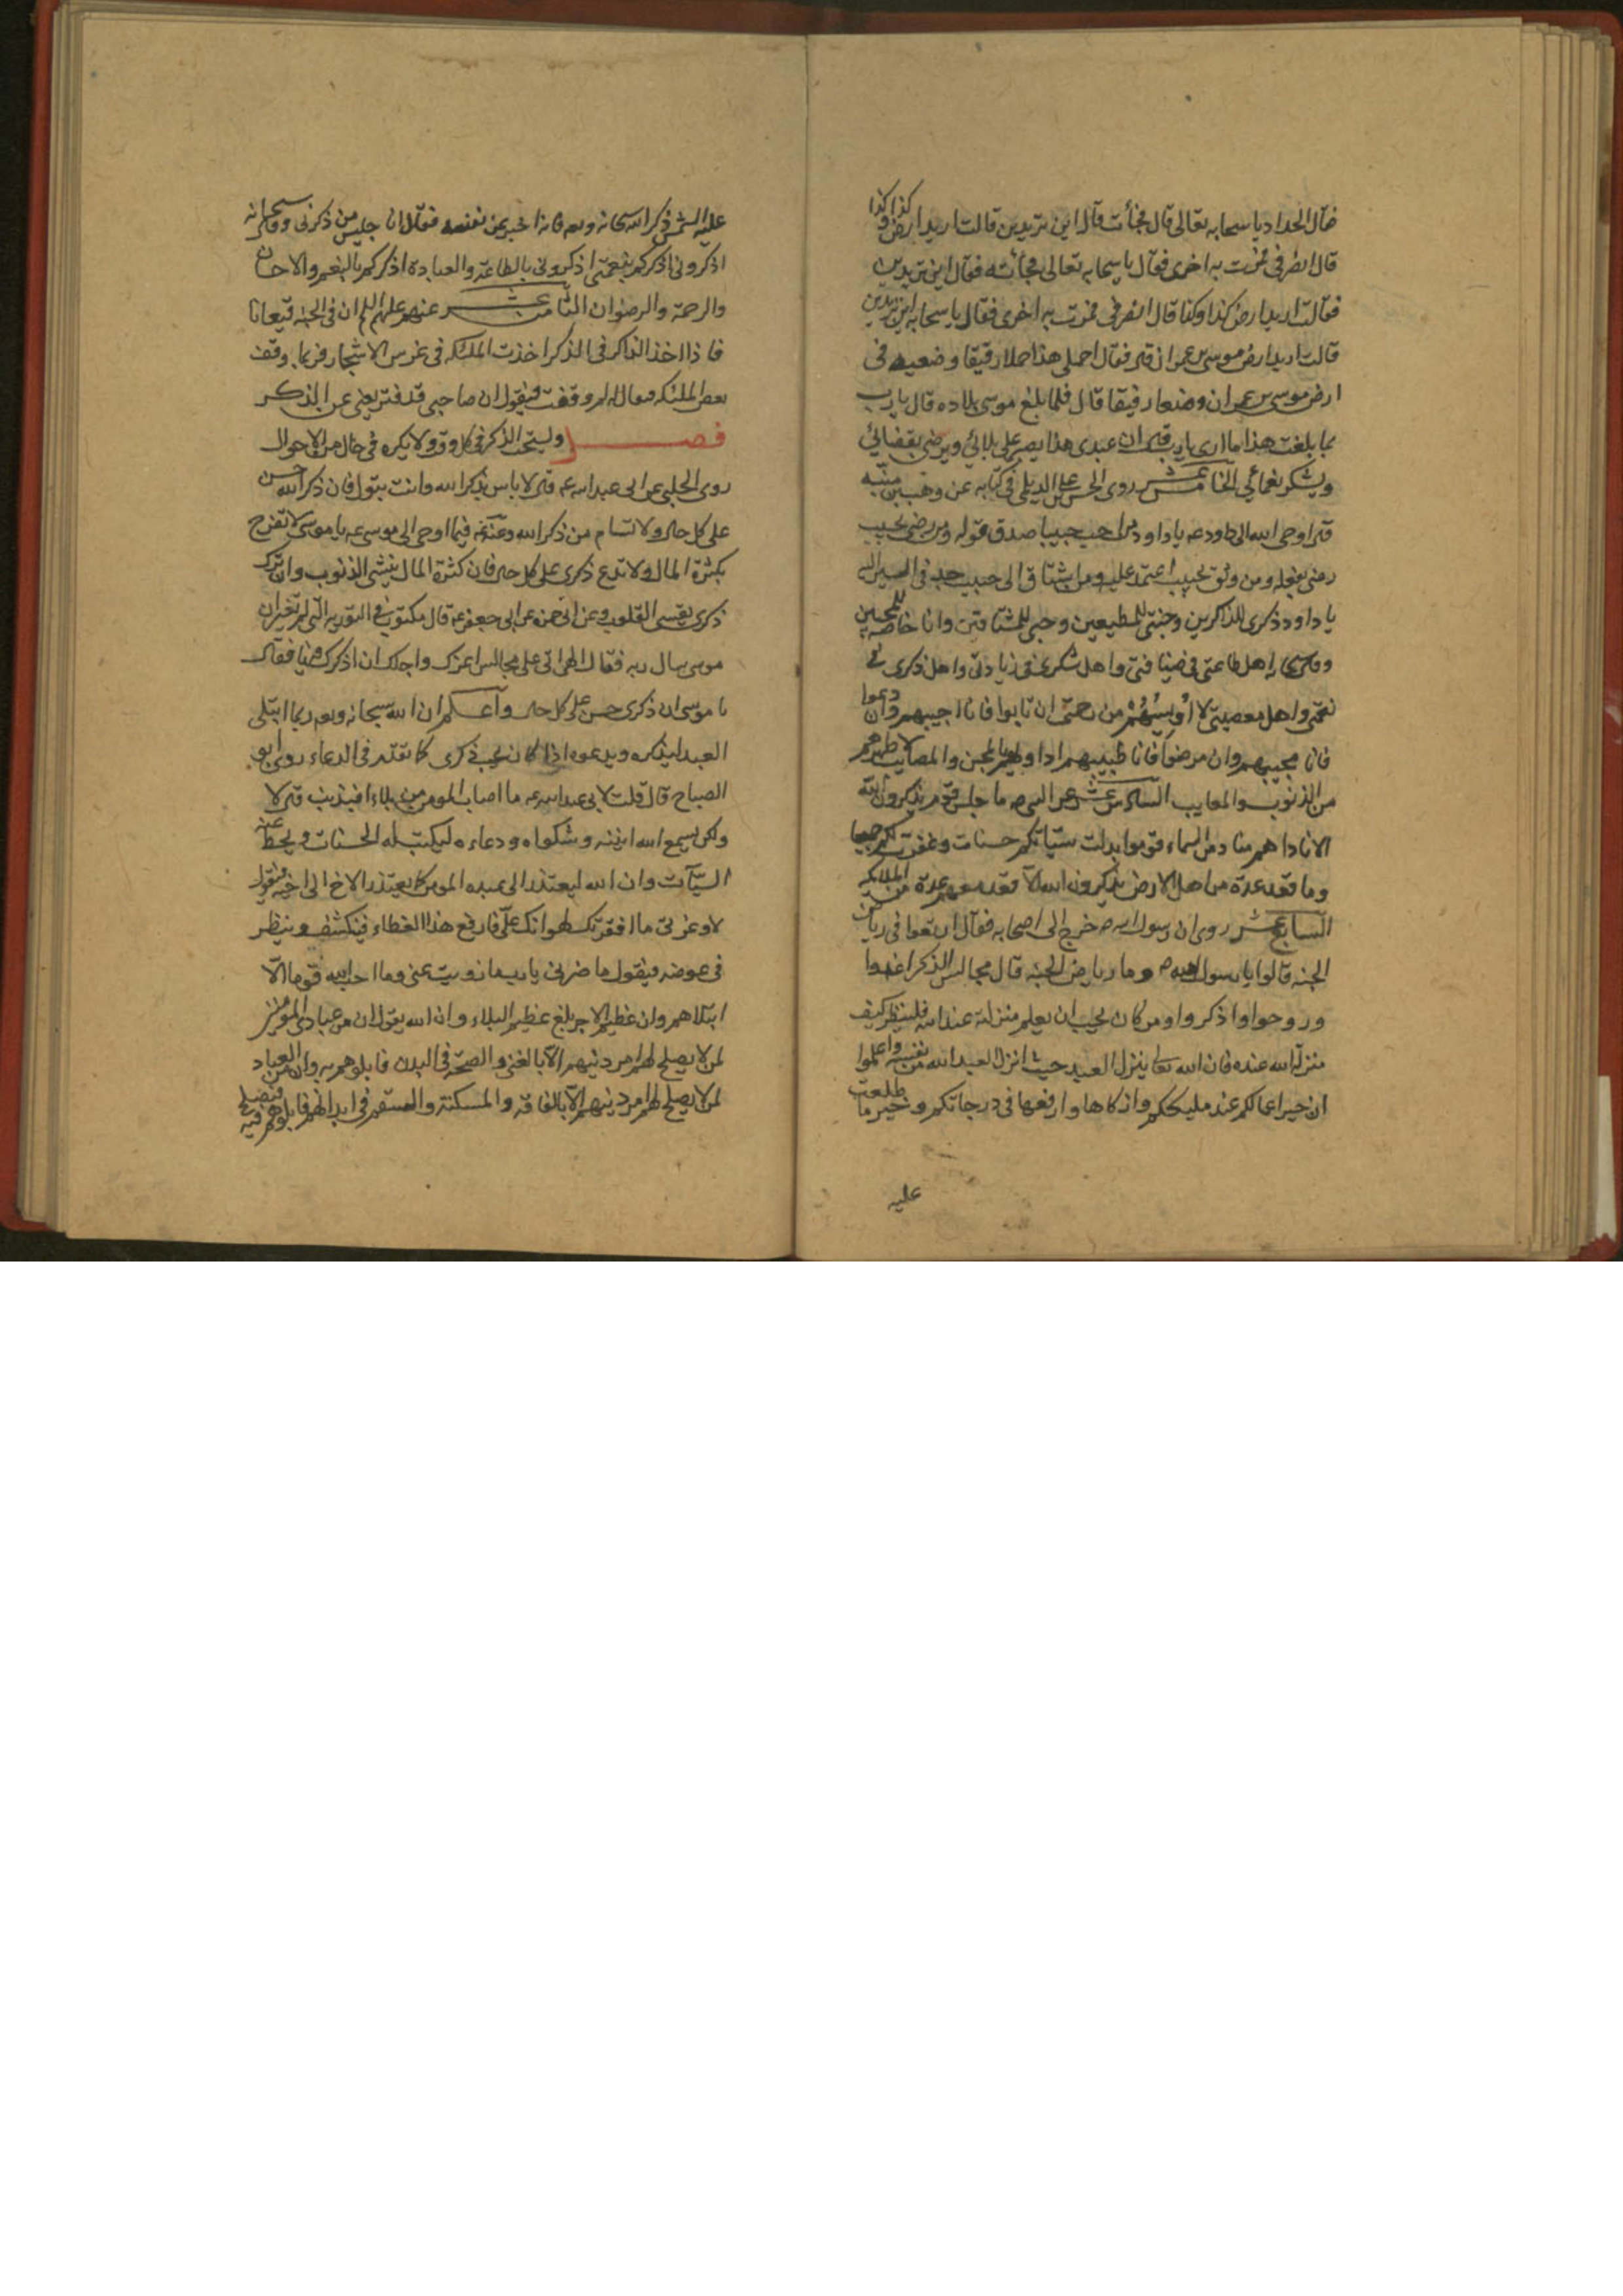 فقال الحداد يا سحابه تعالى قال فجأت قال اين تريدين قالت اريد ارض كذا وكذا
قال انصرفي فمرت به اخرى فقال يا سحابه تعالى فجأته فقال اين تريدين
فقالت اريد ارض كذا وكذا قال انصرفي فمرت به اخرى فقال يا سحابه اين تريدين
قالت اريد ارض موسى بن عمران قال فقال احملي هذا حملا رقيقا وضعيه في
ارض موسى بن عمران وضعا رفيقا قال فلما بلغ موسى بلاده قال يا رب
بما بلغت هذا ما ارى يا رب قال ان عبدي هذا يصبر على بلائي ويرضى بقضائي
ويشكر نعمائي الخامس عشر روى الحسن بن علي الديلمي في كتابه عن وهب بن منبه
قال اوحى الله الى داود ع يا داود من احب حبيبا صدق قوله ومن رضى بحبيب
رضى بفعله ومن وثق بحبيب اعتمد عليه ومن اشتاق الى حبيب جد في السير اليه
يا داود ذكري للذاكرين وجنتي للمطيعين وحبي للمشتاقين وانا خاصه للمحبين
وقال سبحانه اهل طاعتي في ضيافتي واهل شكري في زيادتي واهل ذكري في
نعمتي واهل معصيتي لا اُويسُهُم من رحمتي ان تابوا فانا احبيبهم وان دعوا
فانا مجيبهم وان مرضوا فانا طبيبهم اداويهم بالمحن والمصايب لاطهرهم
من الذنوب والمعايب السادس عشر عن النبي ص ما جلس قوم يذكرون الله
الا ناداهم مناد من السماء قوموا بدلت سيئاتكم حسنات وغفرت لكم جميعا
وما قعد عدة من اهل الارض يذكرون الله الا قعد معهم عدة من الملائكه
السابع عشر روى ان رسول الله ص خرج الى اصحابه فقال ارتعوا في رياض
الجنه قالوا يا رسول الله ص وما رياض الجنه قال مجالس الذكر اغدوا
وروحوا واذكروا ومن كان يحب ان يعلم منزلته عند الله فلينظر كيف
منزلة الله عنده فان الله تعالى ينزل العبد حيث انزل العبد الله من نفسه واعلموا
ان خير اعمالكم عند مليككم وازكاها وارفعها في درجاتكم وخير ما طلعت
عليه
عليه الشمس ذكر الله سبحانه وتعم فانه اخبر عن نفسه فقال انا جليس من ذكرني وقال سبحانه
اذكروني اذكركم بنعمتي اذكروني بالطاعة والعبادة اذكركم بالنعم والاحسان
والرحمة والرضوان الثامن عشر عنهم عليهم السلم ان في الجنه قيعانا
فاذا اخذ الذاكر في الذكر اخذت الملئكه في غرس الاشجار فربما وقف
بعض الملئكه فيقال له لم وقفت فيقول ان صاحبي قد فتر يعني عن الذكر
فصل ويستحب الذكر في كل وقت ولا يكره في حال من الاحوال
روى الحلبي عن ابي عبد الله ع قال لا باس بذكر الله وانت تبول فان ذكر الله حسن
على كل حال ولا تسام من ذكر الله وعنه ع فيما اوحى الى موسى ع يا موسى لا تفرح
بكثرة المال ولا تدع ذكري على كل حال فان كثرة المال ينسي الذنوب وان ترك
ذكري يقسي القلوب وعن ابي حمزه عن ابي جعفر ع قال مكتوب في التوريه التي لم تغير ان
موسى سال ربه فقال الهي اني على مجالس اعزك واجلك ان اذكرك فيها فقال
يا موسى ان ذكري حسن على كل حال واعلم ان الله سبحانه وتعم ربما ابتلى
العبد ليذكره ويدعوه اذا كان يحب ذكره كما تقدم في الدعاء روى ابو
الصباح قال قلت لابي عبد الله ع ما اصاب المومن من بلاء افبذنب قال لا
ولكن يسمع الله انينه وشكواه ودعاءه ليكتب له الحسنات ويحط عنه
السيآت وان الله ليعتذر الى عبده المومن كما يعتذر الاخ الى اخيه فيقول
لا وعزتي ما افقرتك لهوانك علي فارفع هذا الغطاء فيكشف وينظر
في عوضه فيقول ما ضرني يا رب ما زويت عني وما احب الله قوما الا
ابتلاهم وان عظيم الاجر بلغ عظيم البلاء وان الله يقول ان من عبادي المومنين
لمن لا يصلح لهم امر دينهم الا بالغنى والصحة في البدن فابلوهم به وان من العباد
لمن لا يصلح لهم امر دينهم الا بالفاقه والمسكنة والسقم في ابدانهم فابلوهم فيه فيصلح